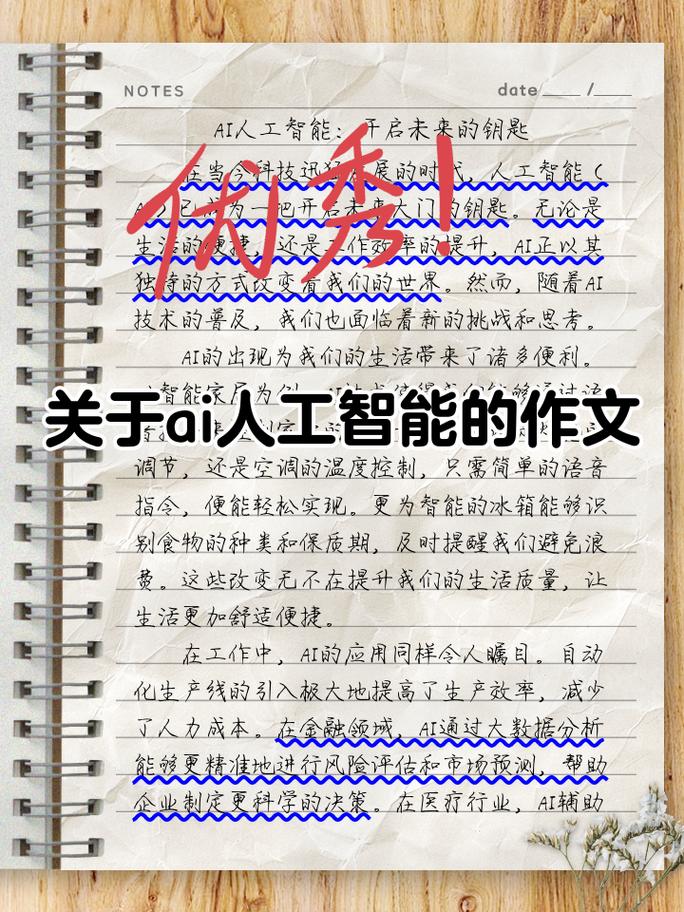 NOTES
date ____ /____
AI人工智能：开启未来的钥匙
优秀！
在当今科技迅猛发展的时代，人工智能（
AI）已成为一把开启未来大门的钥匙。无论是
生活的便捷，还是工作效率的提升，AI正以其
独特的方式改变着我们的世界。然而，随着AI
技术的普及，我们也面临着新的挑战和思考。
AI的出现为我们的生活带来了诸多便利。
智能家居为例，
关于ai人工智能的作文
调节，还是空调的温度控制，只需简单的语音
指令，便能轻松实现。更为智能的冰箱能够识
别食物的种类和保质期，及时提醒我们避免浪
费。这些改变无不在提升我们的生活质量，让
生活更加舒适便捷。
在工作中，AI的应用同样令人瞩目。自动
化生产线的引入极大地提高了生产效率，减少
了人力成本。在金融领域，AI通过大数据分析
能够更精准地进行风险评估和市场预测，帮助
企业制定更科学的决策。在医疗行业，AI辅助